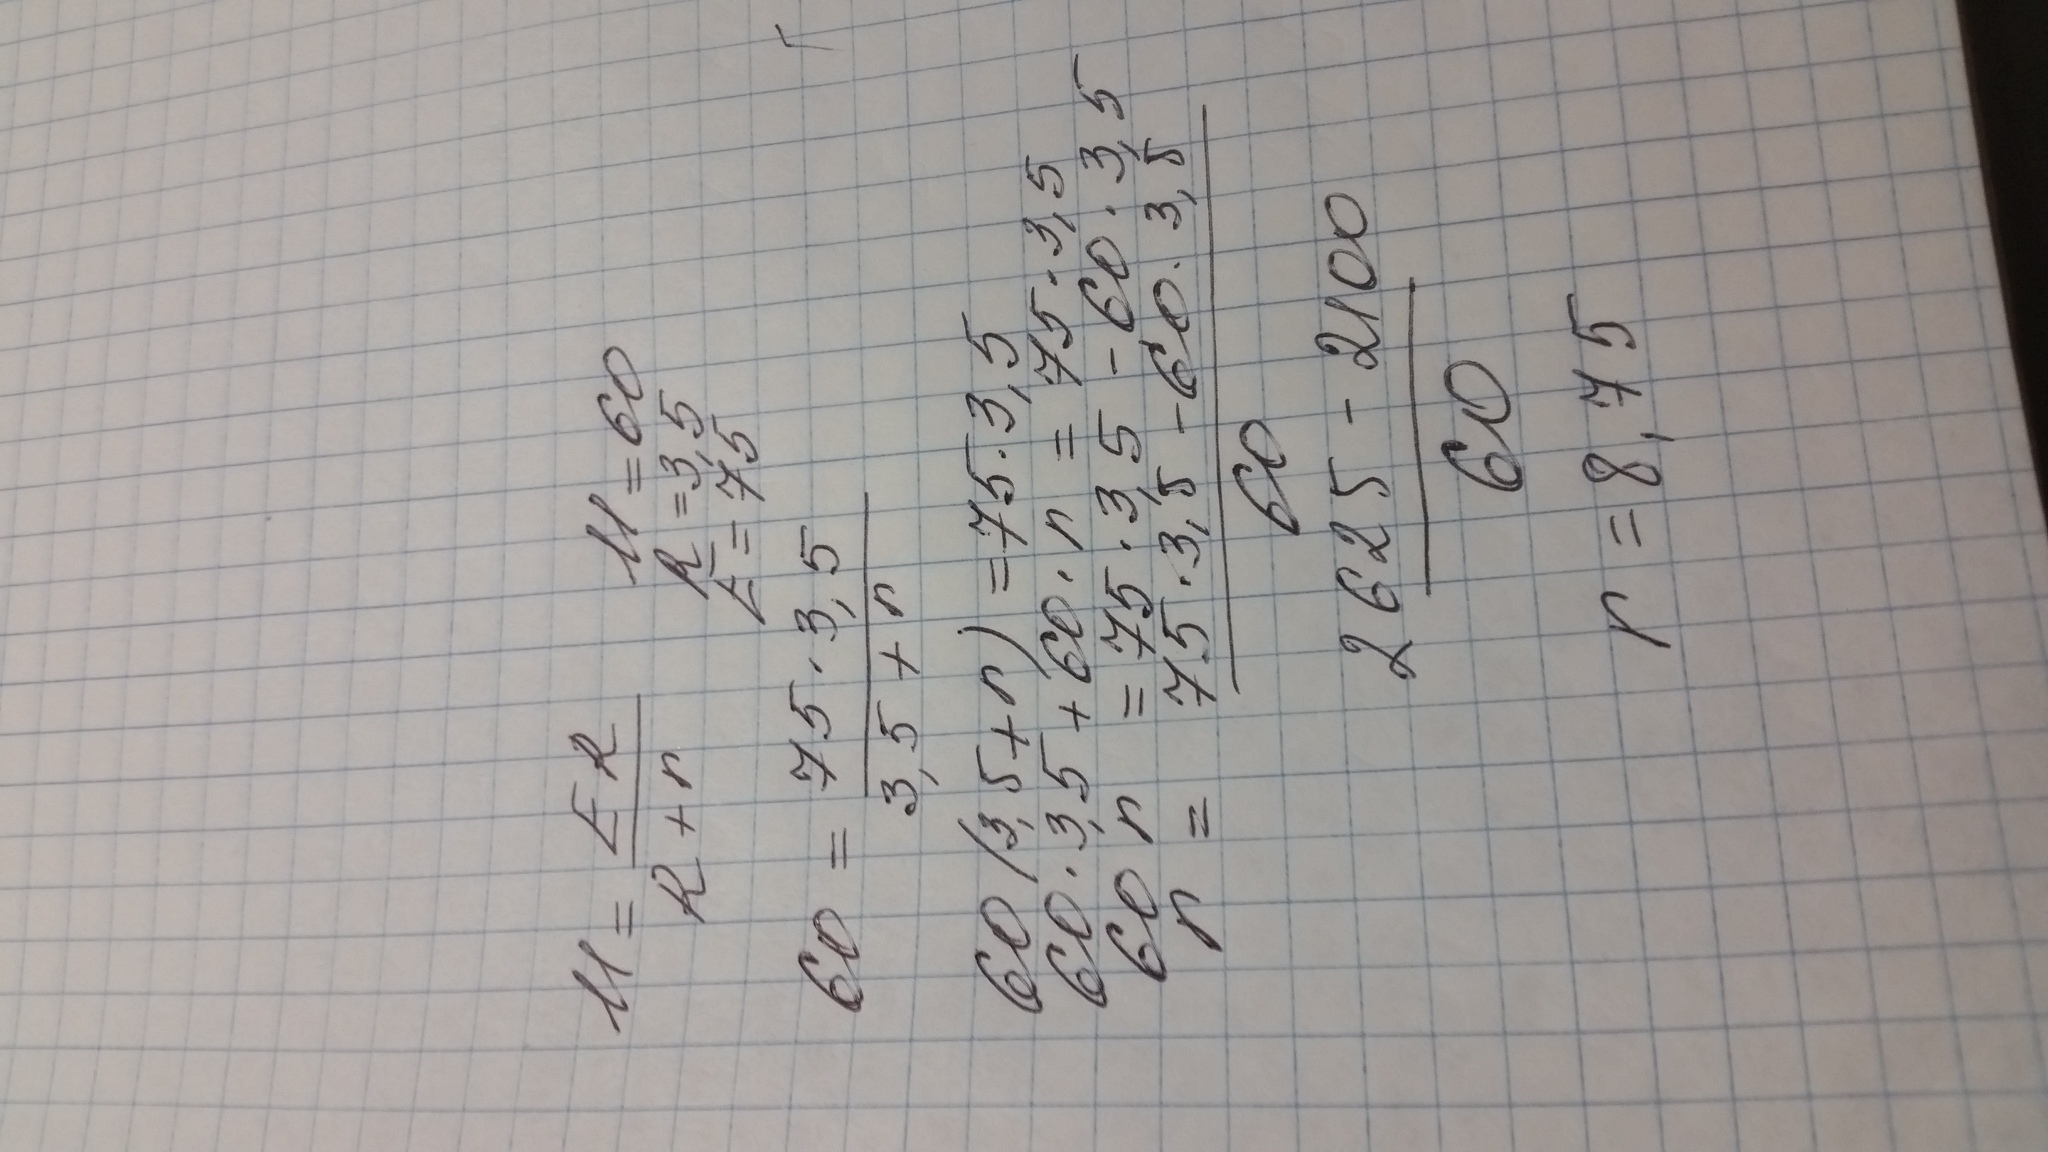 U = ER / R + r
U = 60
R = 3,5
E = 75
60 = 75 · 3,5 / 3,5 + r
60 (3,5 + r) = 75 · 3,5
60 · 3,5 + 60 · r = 75 · 3,5
60 r = 75 · 3,5 - 60 · 3,5
r = 75 · 3,5 - 60 · 3,5 / 60
2625 - 2100 / 60
r = 8,75